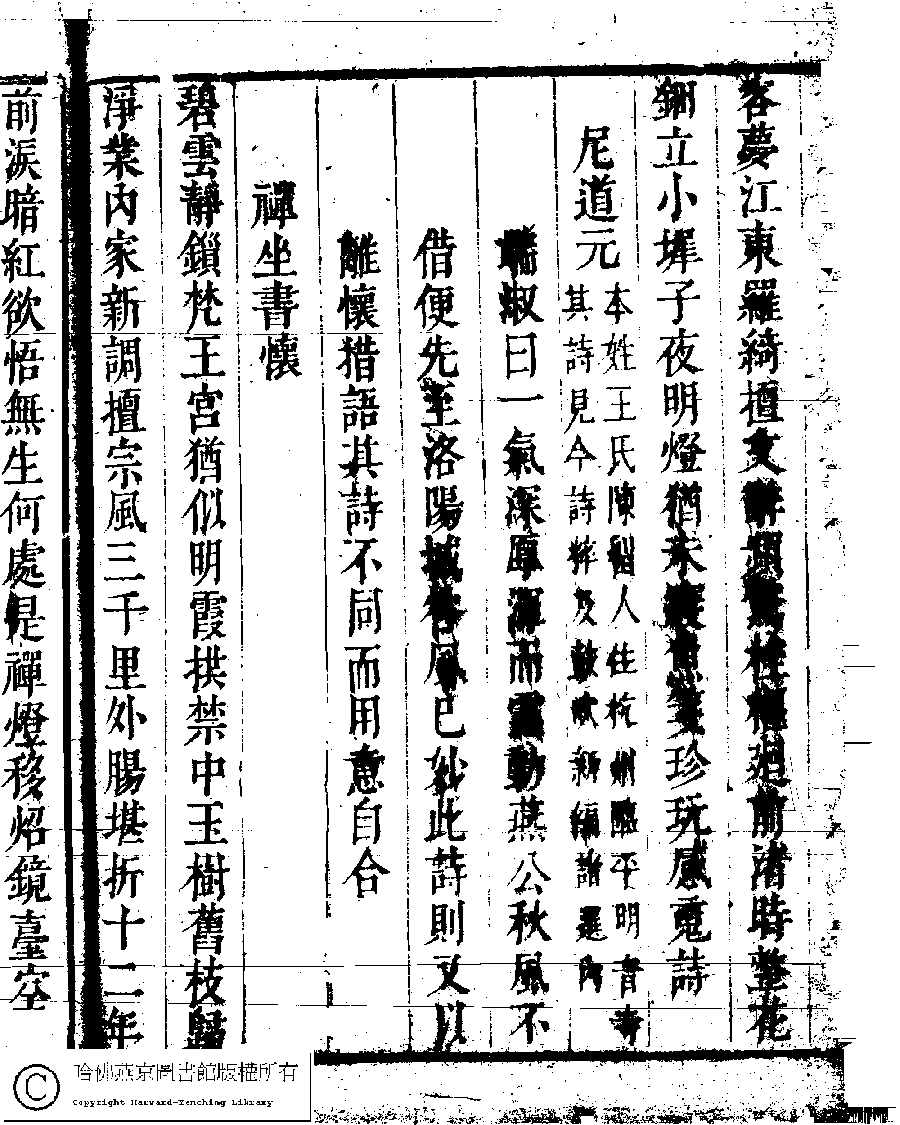 客夢江東羅綺擅文 廻前渚時整花
鈿立小墀子夜明燈猶未 珍玩感霓詩
尼道元
本姓王氏陳留人住杭州臨平明音寺
其詩見今詩粹及鼓吹新編詩選內
端淑曰一氣深厚渾而靈動燕公秋風不
借便先至洛陽城客風已紗此詩則又以
離懷猎語其詩不同而用意自合
禪坐書懷
碧雲靜鎖梵王宮猶似明霞拱禁中玉樹舊枝歸
淨業內家新調擅宗風三千里外腸堪折十二年
前淚暗紅欲悟無生何處是禪燈移炤鏡臺空
哈佛燕京圖書館版權所有
Copyright Harvard-Yenching Library